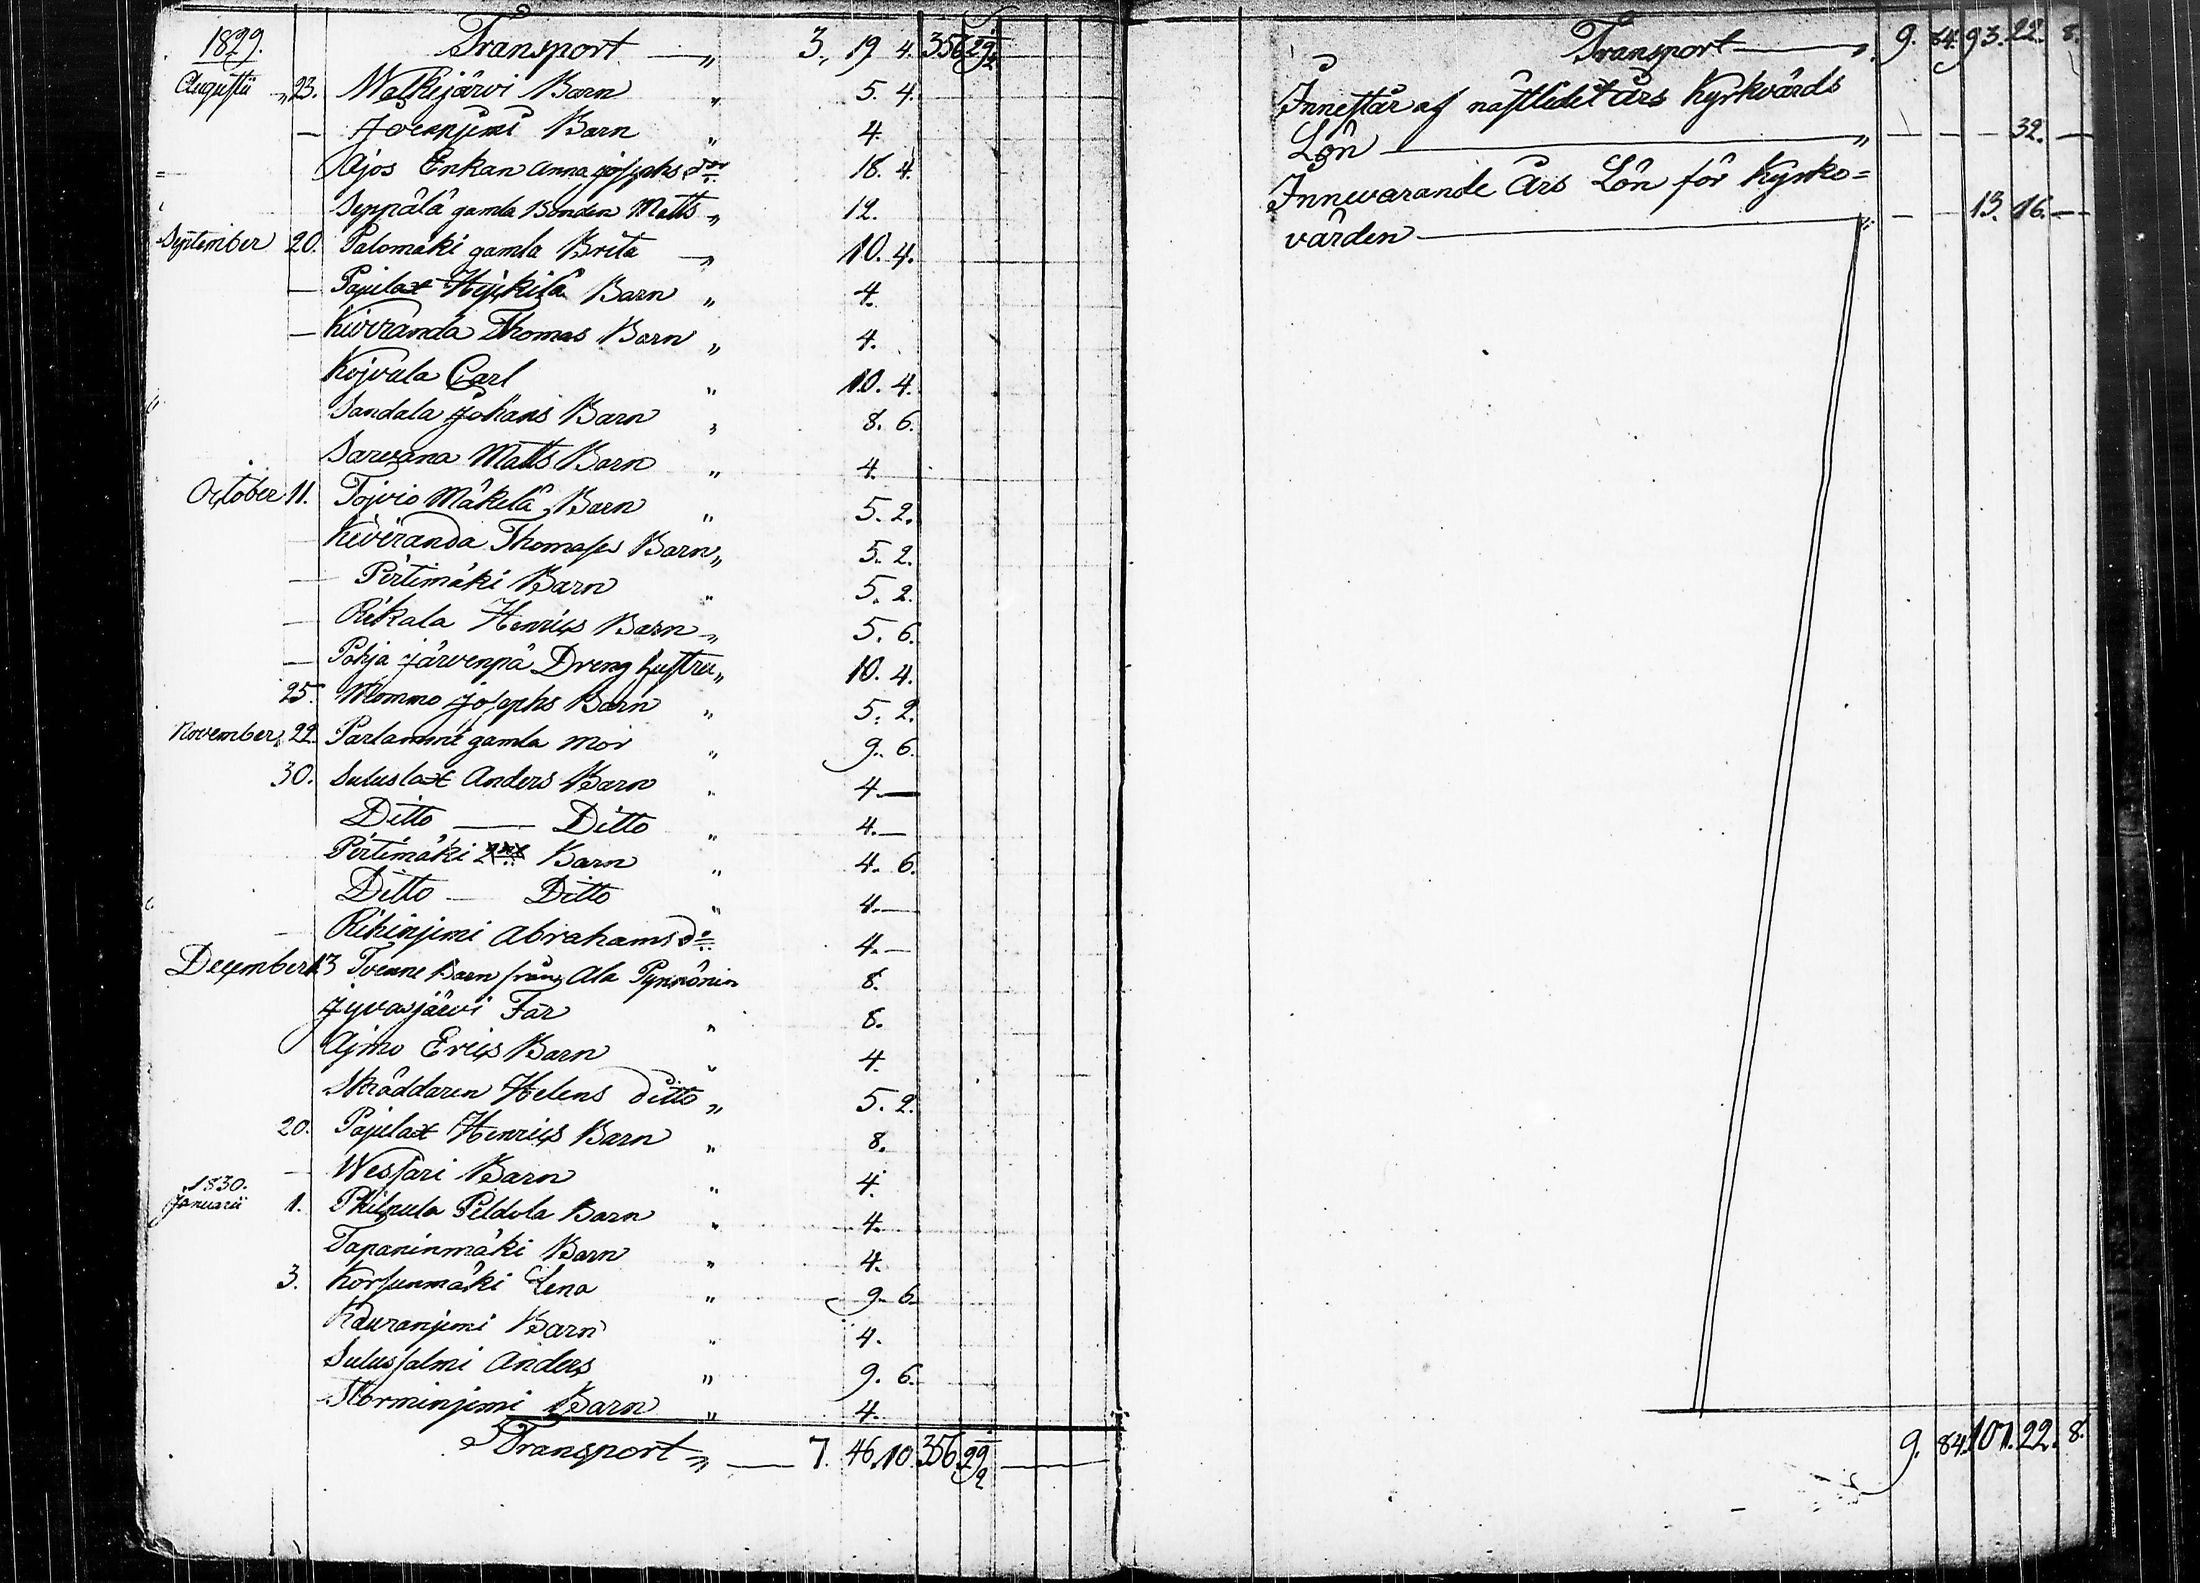 1829. Transport — „ 3. 19 4. 356 29 1/2
Augusti „ 23. Walkejärvi Barn „ 5. 4.
— Jovenjemi Barn „ 4.
Ajos Enkan Anna Josephs dr 18. 4.
Seppälä gamla Bonden Matts „ 12.
September 20. Palomäki gamla Brita „ 10. 4.
— Pajulax Hejkilä Barn „ 4.
— Kiviranda Thomas Barn „ 4.
Kojvula Carl „ 10. 4.
Sandala Johans Barn „ 8. 6.
Sarvana Matts Barn „ 4.
October 11. Tojvio Mäkelä Barn „ 5. 2.
Kiviranda Thomases Barn „ 5. 2.
— Pirtimäki Barn „ 5. 2.
— Rekala Henrics Barn „ 5. 6.
— Pohja järvenpä Dreng hustru „ 10. 4.
25. Mommo Josephs Barn „ 5. 2.
November 22. gamla mor „ 9. 6.
30. Suluslax Anders Barn „ 4. —
Ditto — Ditto „ 4. —
Pirtimäki Barn „ 4. 6.
Ditto — Ditto „ 4. —
Rihinjemi Abrahams do 4. —
December 13 Tvenne Barn från Ala Pynnönin 8.
Jyvasjärvi Far „ 8.
Ajmo Erics Barn „ 4.
Skräddaren Helens ditto „ 5. 2.
20. Pajulax Henrics Barn „ 8.
— Wessari Barn „ 4.
1830.
Januarii 1. Philpula Peldola Barn „ 4.
Tapaninmäki Barn „ 4.
3. Korsunmäki Lena „ 9. 6.
Kauranjemi Barn „ 4.
Sulussalmi Anders „ 9. 6.
Norminjemi Barn „ 4.
Transport „ — 7. 46. 10. 356 29 1/2 —
Transport — „ 9. 84. 93. 22. 8.
Innestår af nästledet års Kyrkvärds
Lön — „ — — — 32. —
Innevarande års Lön för Kyrko=
värden — „ — — 13. 16. —
9. 84. 107. 22. 8.